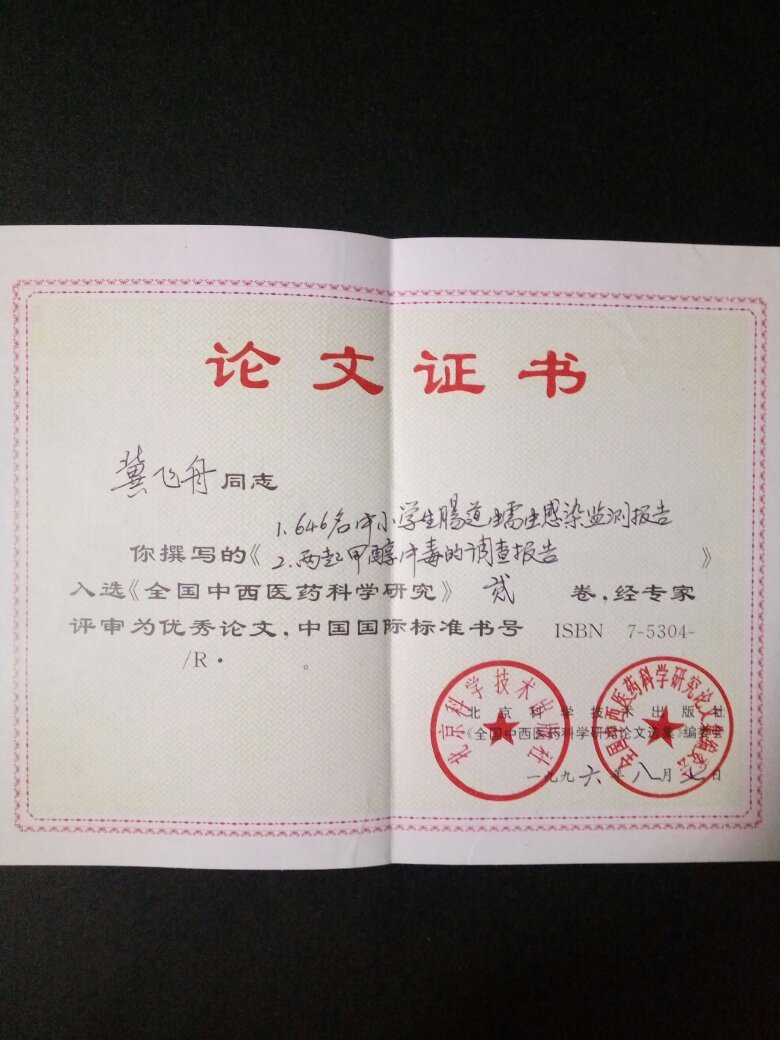 论文证书
冀飞舟同志
1.646名中小学生肠道蠕虫感染监测报告
你撰写的《2.两起甲醇中毒的调查报告》
入选《全国中西医药科学研究》贰卷,经专家
评审为优秀论文,中国国际标准书号 ISBN 7-5304-
/R·。
北京科学技术出版社
《全国中西医药科学研究论文选集》编委会
一九九六年八月七日
北京科学技术出版社
全国中西医药科学研究论文